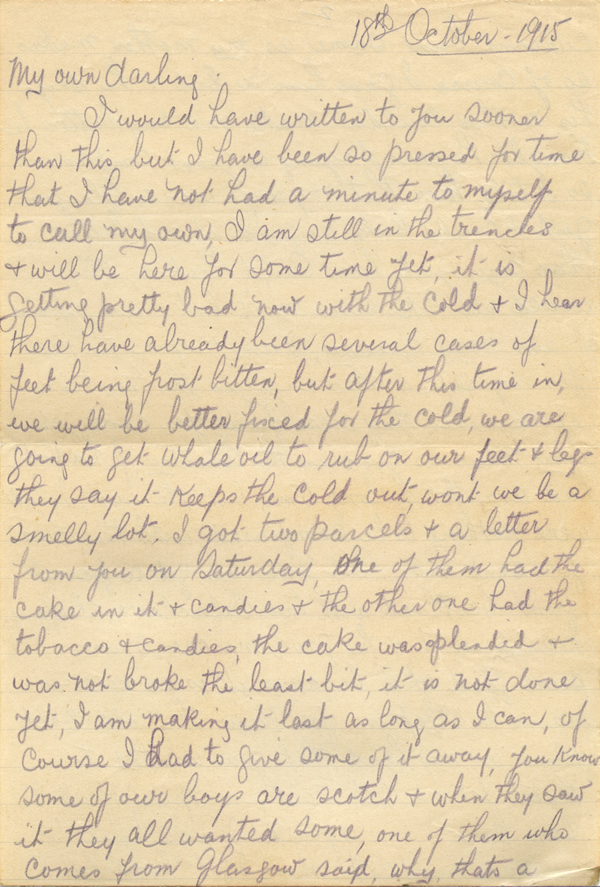 18th October - 1915
My own darling.
I would have written to you sooner
than this but I have been so pressed for time
that I have not had a minute to myself
to call my own, I am still in the trenches
& will be here for some time yet, it is
getting pretty bad now with the cold & I hear
there have already been several cases of
feet being frost bitten, but after this time in,
we will be better fixed for the cold, we are
going to get whale oil to rub on our feet & legs
they say it keeps the cold out, wont we be a
smelly lot. I got two parcels & a letter
from you on Saturday, One of them had the
cake in it & candies & the other one had the
tobacco & candies, the cake was splendid &
was not broke the least bit, it is not done
yet, I am making it last as long as I can, of
course I had to give some of it away, you know
some of our boys are scotch & when they saw
it they all wanted some, one of them who
comes from Glasgow said, why, thats a